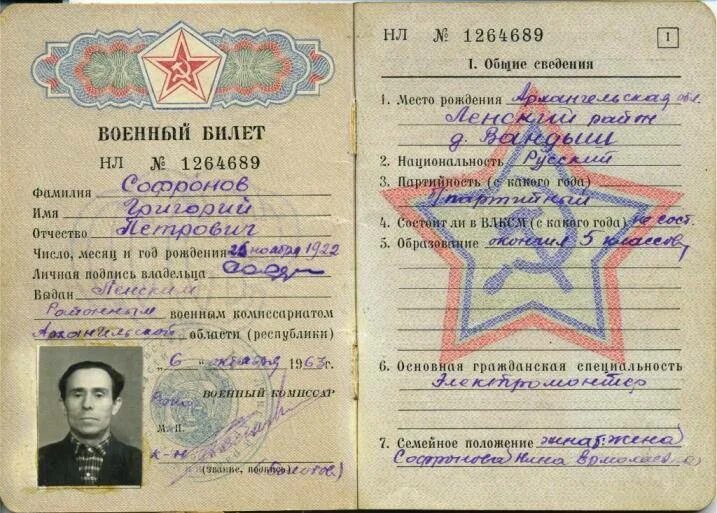 ВОЕННЫЙ БИЛЕТ
НЛ № 1264689
Фамилия Софронов
Имя Григорий
Отчество Петрович
Число, месяц и год рождения 26 ноября 1922
Личная подпись владельца
Выдан Ленским
Районным военным комиссариатом
Архангельской области (республики)
„6 “ октября 1963г.
ВОЕННЫЙ КОМИССАР
М. П.
(звание, подпись)
НЛ № 1264689
1
I. Общие сведения
1. Место рождения Архангельская обл.
Ленский район
д. Вандыш
2. Национальность Русский
3. Партийность (с какого года)
б/партийный
4. Состоит ли в ВЛКСМ (с какого года) не сост.
5. Образование окончил 5 классов
6. Основная гражданская специальность
Электромонтер
7. Семейное положение женат: жена
Софронова Нина Ермолаевна